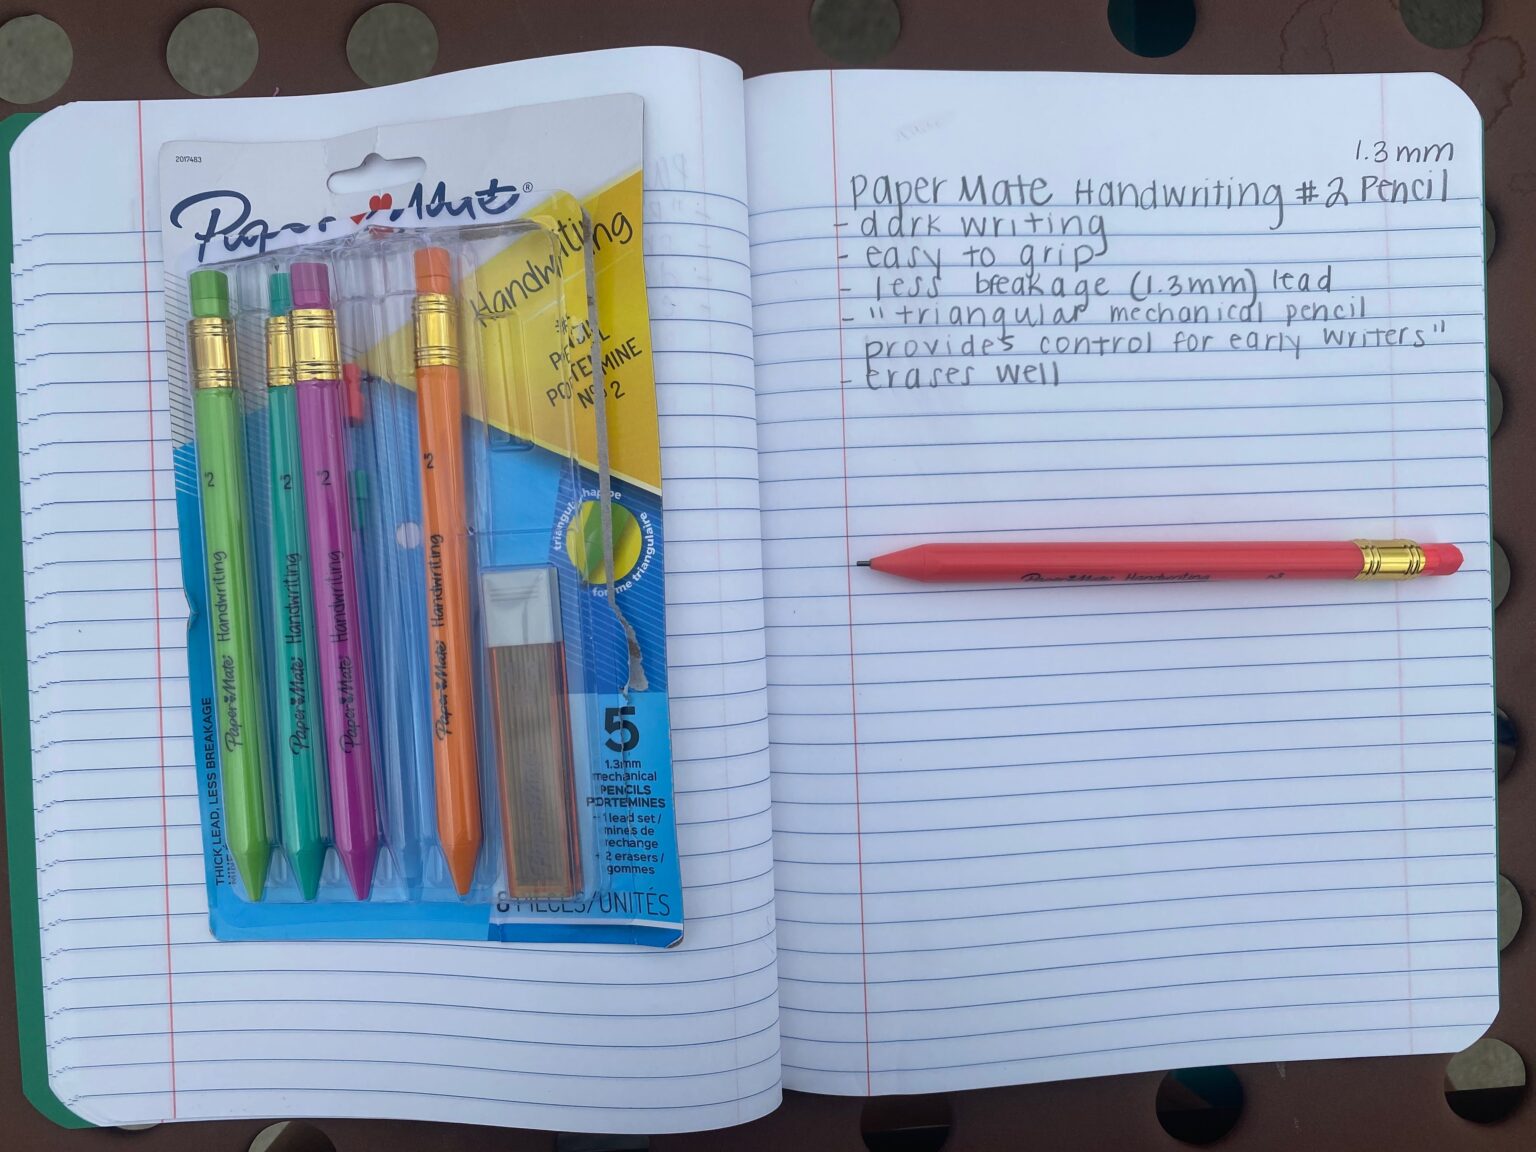 2017483
Paper Mate®
Handwriting
PORTEMINE
Nº 2
triangular shape
forme triangulaire
2
Paper Mate Handwriting
2
Paper Mate Handwriting
2
Paper Mate Handwriting
2
Paper Mate Handwriting
THICK LEAD, LESS BREAKAGE
5
1.3mm
mechanical
PENCILS
PORTEMINES
+ 1 lead set /
mines de
rechange
+ 2 erasers /
gommes
8 PIECES/UNITÉS
1.3 mm
Paper Mate Handwriting #2 Pencil
- dark writing
- easy to grip
- less breakage (1.3mm) lead
- "triangular mechanical pencil
provides control for early writers"
- erases well
Paper Mate Handwriting 2